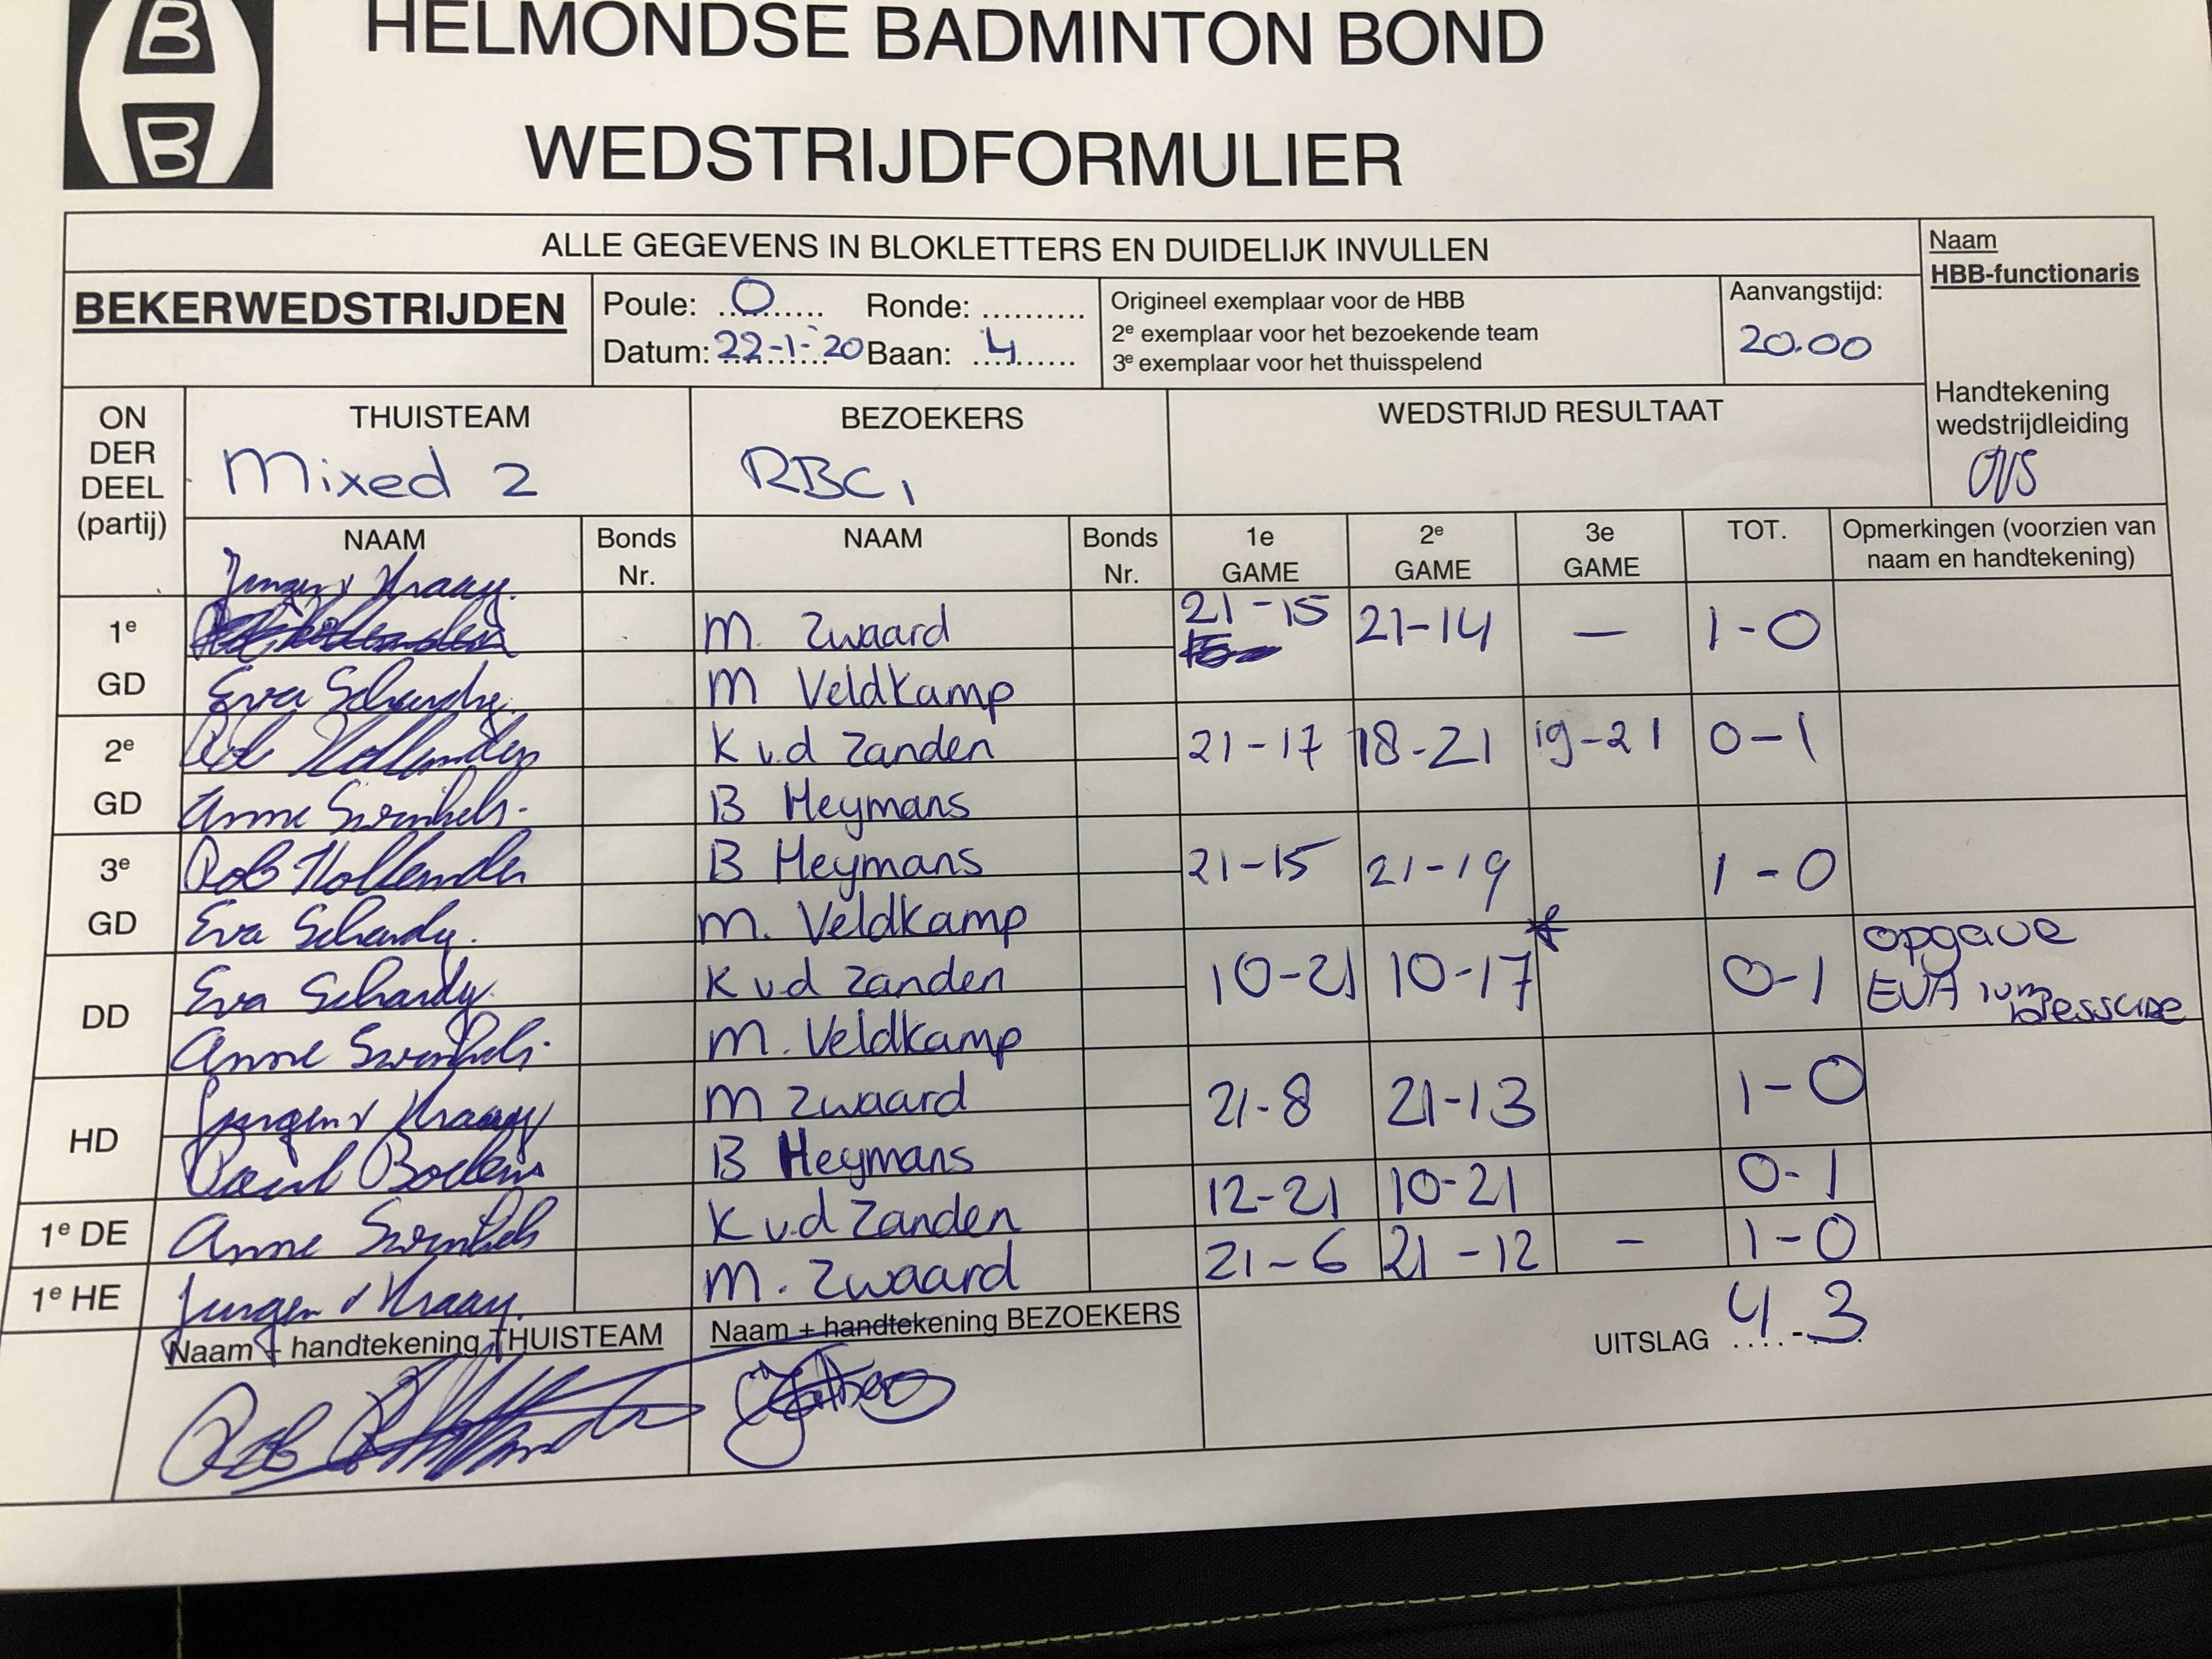 B
B
HELMONDSE BADMINTON BOND
WEDSTRIJDFORMULIER
ALLE GEGEVENS IN BLOKLETTERS EN DUIDELIJK INVULLEN
Naam
HBB-functionaris
BEKERWEDSTRIJDEN
Poule: O Ronde: ..........
Datum: 22-1-20 Baan: 4
Origineel exemplaar voor de HBB
2e exemplaar voor het bezoekende team
3e exemplaar voor het thuisspelend
Aanvangstijd:
20.00
Handtekening
wedstrijdleiding
ON
DER
DEEL
(partij)
THUISTEAM
Mixed 2
BEZOEKERS
RBC 1
WEDSTRIJD RESULTAAT
NAAM Bonds Nr. NAAM Bonds Nr. 1e GAME 2e GAME 3e GAME TOT. Opmerkingen (voorzien van naam en handtekening)
Jurgen v Kraay.
1e M. Zwaard 21-15 21-14 — 1-0
GD Eva M Veldkamp
2e Rob K v.d Zanden 21-17 18-21 19-21 0-1
GD Anne Swinkels. B Heymans
3e Rob B Heymans 21-15 21-19 1-0
GD Eva M. Veldkamp
DD Eva K v.d Zanden 10-21 10-17* 0-1 opgave EVA blessure
Anne Swinkels. M. Veldkamp
HD Jurgen v Kraay M Zwaard 21-8 21-13 1-0
Paul B Heymans
1e DE Anne Swinkels K v.d Zanden 12-21 10-21 0-1
1e HE Jurgen v Kraay. M. Zwaard 21-6 21-12 - 1-0
Naam + handtekening THUISTEAM
Naam + handtekening BEZOEKERS
UITSLAG 4-3
Rob